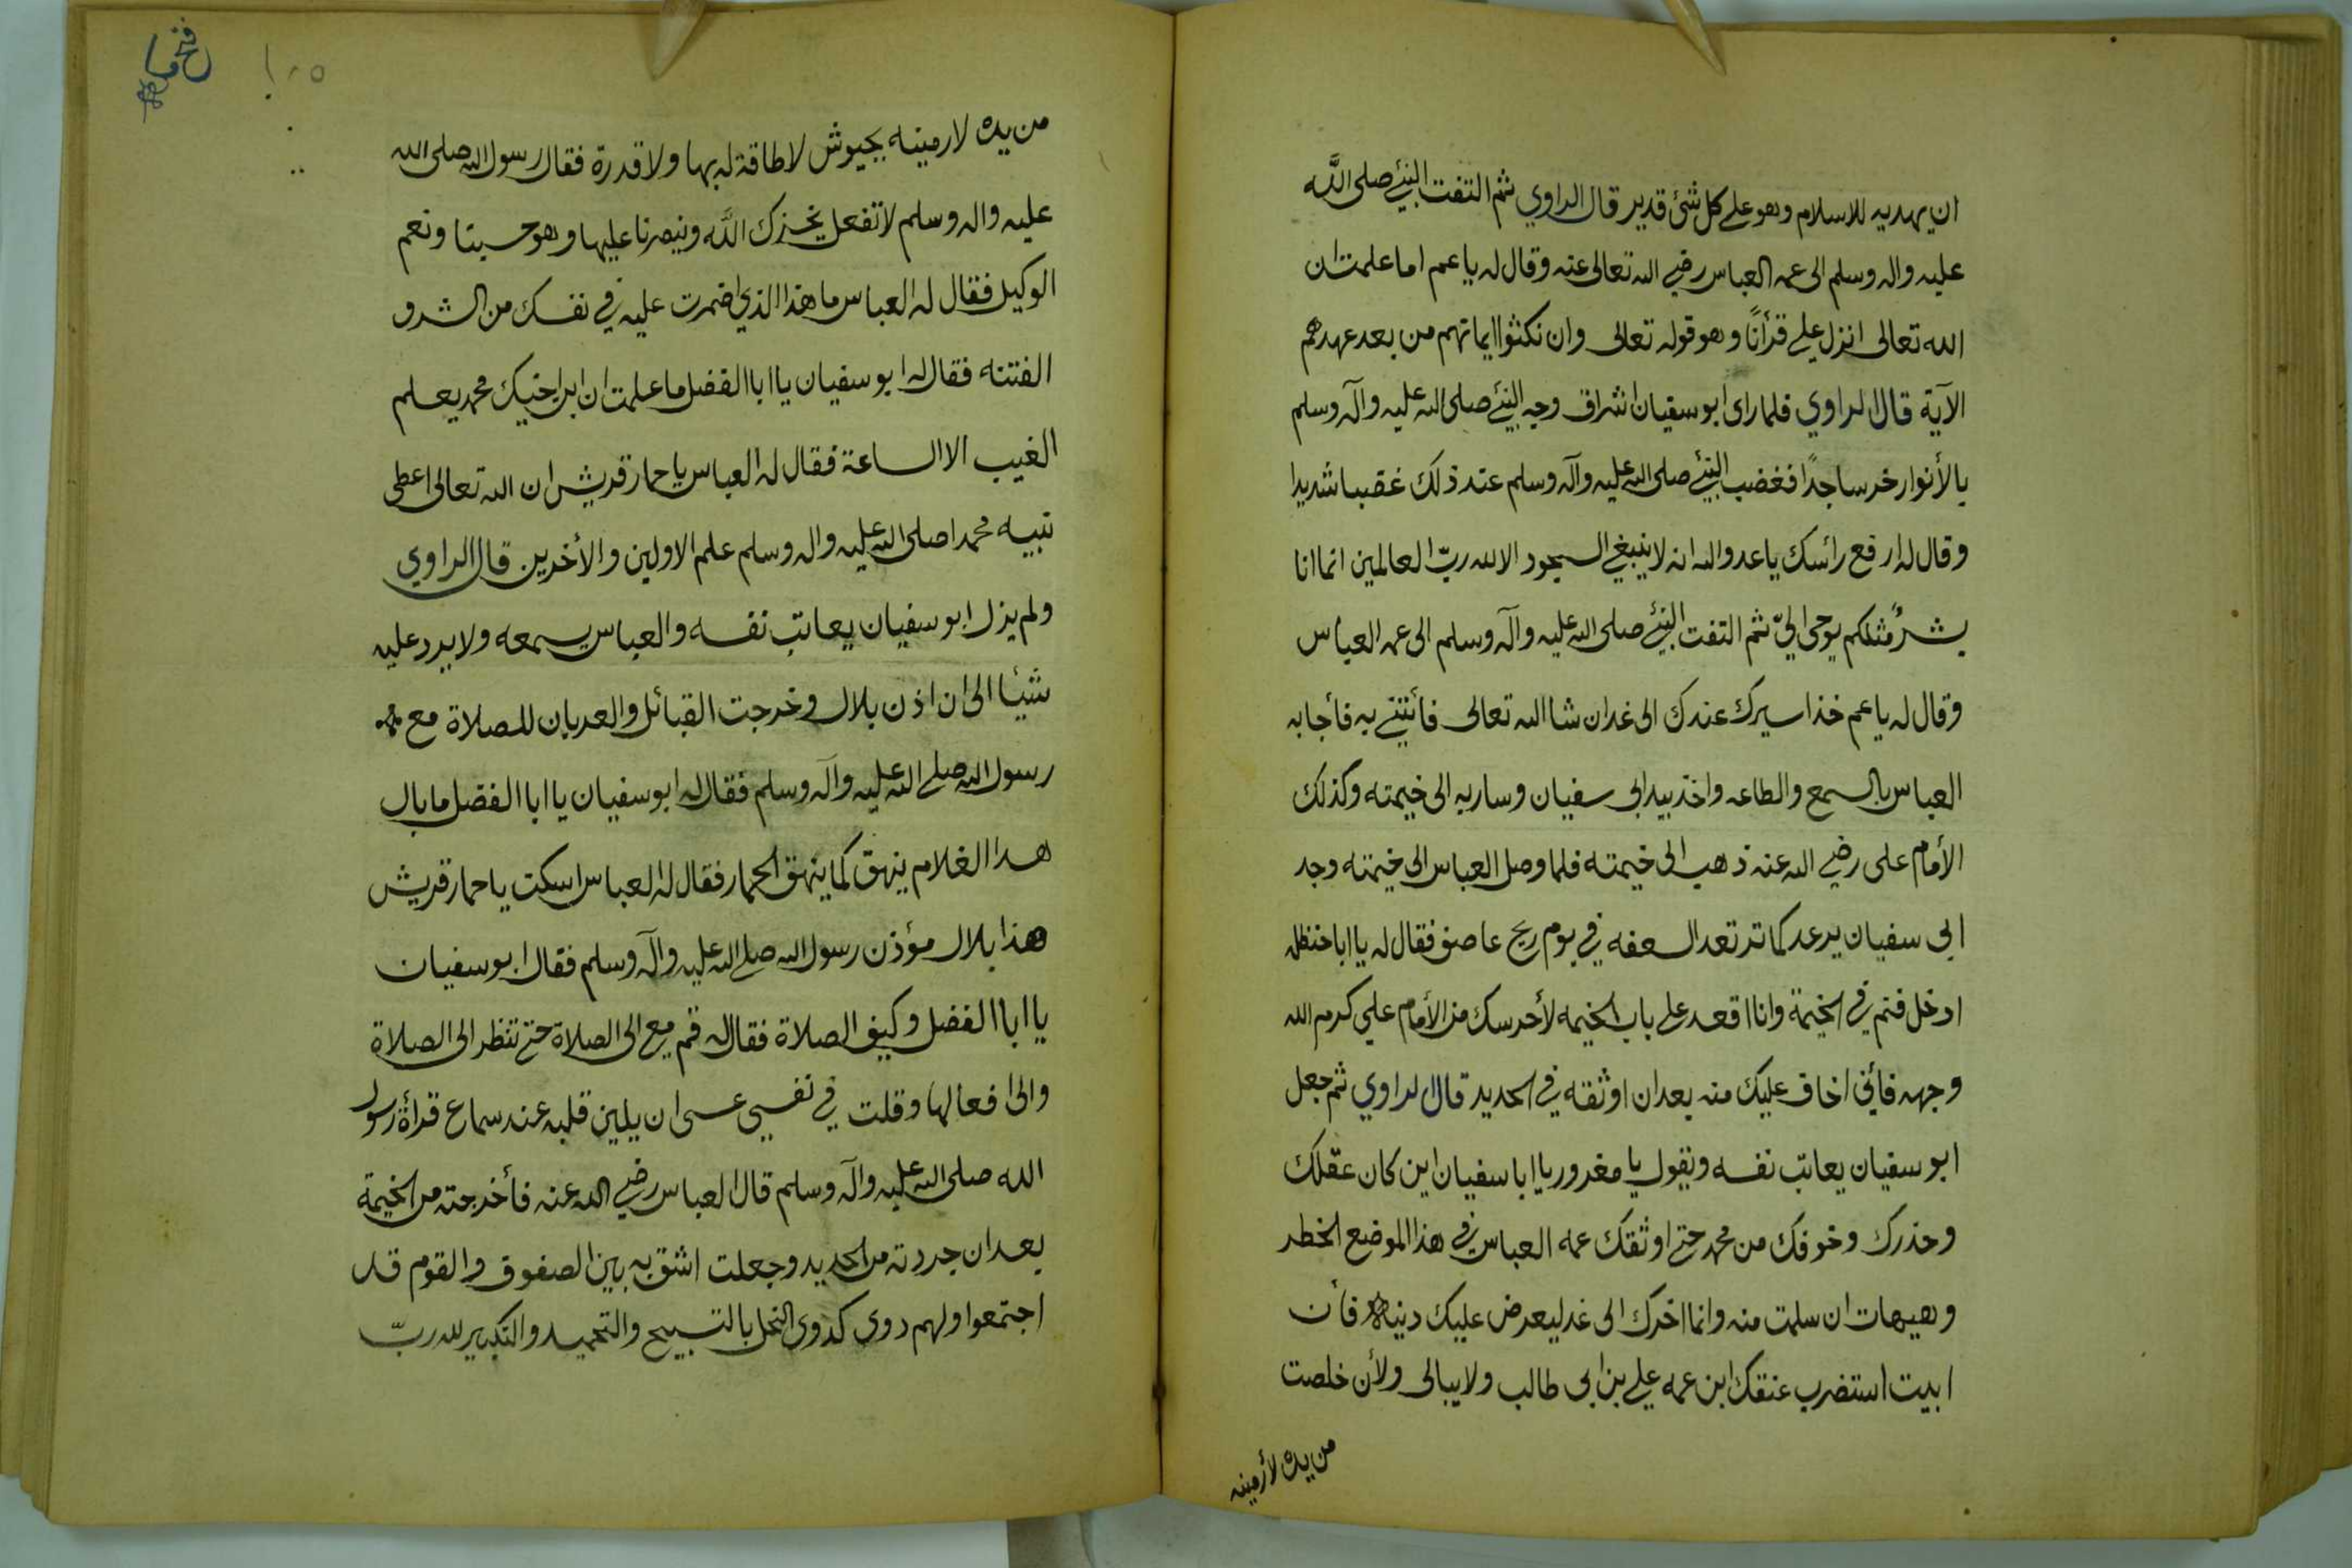 ان يهديه للاسلام وهو على كل شئ قدير قال الراوي ثم التفت النبئ صلى الله
عليه واله وسلم الى عمه العباس رضي الله تعالى عنه وقال له يا عم اما علمت ان
الله تعالى انزل علي قرأنًا وهو قوله تعالى وان نكثوا ايمانهم من بعد عهدهم
الآية قال الراوي فلما راى ابو سفيان اشراق وجه النبئ صلى الله عليه وآله وسلم
بالأنوار خر ساجدًا فغضب النبئ صلى الله عليه وآله وسلم عند ذلك غضبا شديدا
وقال له ارفع رائسك يا عدو الله انه لا ينبغي السجود الا لله ربّ العالمين انما انا
بشرٌ مثلكم يوحى اليّ ثم التفت النبئ صلى الله عليه وآله وسلم الى عمه العباس
وقال له يا عم خذ اسيرك عندك الى غد ان شا الله تعالى فأتني به فأجابه
العباس بالسمع والطاعه واخذ بيد ابى سفيان وسار به الى خيمته وكذلك
الأمام على رضي الله عنه ذهب الى خيمته فلما وصل العباس الى خيمته وجد
ابى سفيان يرعد كما ترتعد السعفه في يوم ريح عاصف فقال له يا ابا حنظله
ادخل فنم في الخيمة وانا اقعد على باب الخيمه لأحرسك من الأمام علي كرم الله
وجهه فأني اخاف عليك منه بعد ان اوثقه في الحديد قال الراوي ثم جعل
ابو سفيان يعاتب نفسه ويقول يا مغرور يا ابا سفيان اين كان عقلك
وحذرك وخوفك من محمد حتى اوثقك عمه العباس في هذا الموضع الخطر
وهيهات ان سلمت منه وانما اخرك الى غد ليعرض عليك دينه فأن
ابيت استضرب عنقك ابن عمه علي بن ابى طالب ولا يبالى ولأن خلصت
من يده لأرمينه
١٠٥
من يده لارمينه بجيوش لا طاقة له بها ولا قدرة فقال رسول الله صلى الله
عليه واله وسلم لا تفعل يخزك الله وينصرنا عليها وهو حسبنا ونعم
الوكيل فقال له العباس ما هذا الذي اضمرت عليه في نفسك من الشر و
الفتنه فقال له ابو سفيان يا ابا الفضل ما علمت ان ابن اخيك محمد يعلم
الغيب الا الساعة فقال له العباس يا حمار قريش ان الله تعالى اعطى
نبيه محمدا صلى الله عليه واله وسلم علم الاولين والأخرين قال الراوي
ولم يزل ابو سفيان يعاتب نفسه والعباس يسمعه ولا يرد عليه
شيئا الى ان اذن بلال وخرجت القبائل والعربان للصلاة مع
رسول الله صلى الله عليه وآله وسلم فقال له ابو سفيان يا ابا الفضل ما بال
هدا الغلام ينهق كما ينهق الحمار فقال له العباس اسكت يا حمار قريش
هذا بلال مؤذن رسول الله صلى الله عليه وآله وسلم فقال ابو سفيان
يا ابا الفضل وكيف الصلاة فقال له قم مع الى الصلاة حتى تنظر الى الصلاة
والى افعالها وقلت في نفسي عسى ان يلين قلبه عند سماع قرأة رسول
الله صلى الله عليه وآله وسلم قال العباس رضي الله عنه فأخرجته من الخيمة
بعد ان جردته من الحديد وجعلت اشق به بين الصفوف والقوم قد
اجتمعوا ولهم دوى كدوى النحل بالتسبيح والتحميد والتكبير لله ربّ